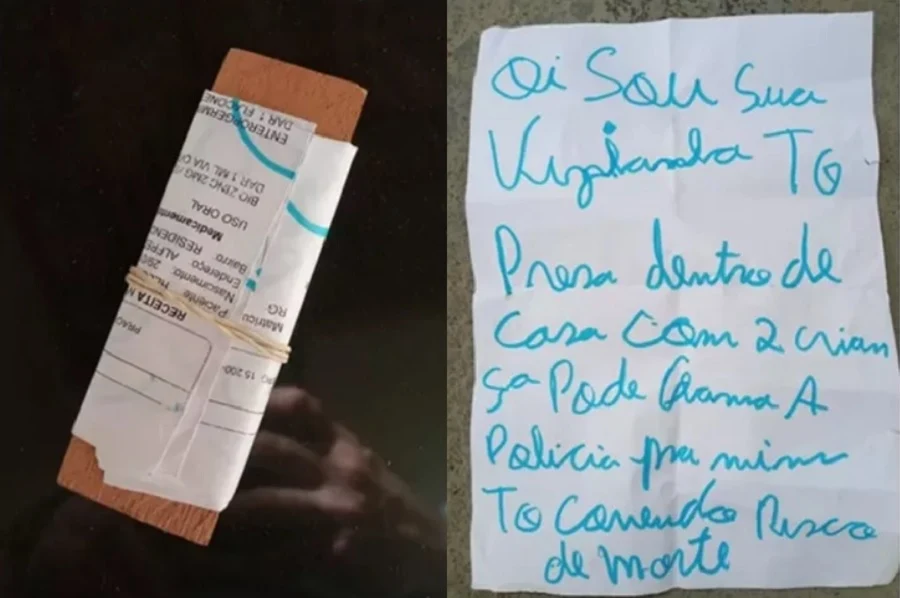 ENTEROGERMI
DAR 1 FLACONE
BIO 2BNC 2MG/
DAR 1 ML VIA O
USO ORAL
Medicament
RESIDEN
Bairro:
Endereço: ALFRE
Nascimento: 29
Paciente:
RG:
Matrícu
RECEITA
PRAC
15.200-
Oi Sou Sua
Vizianha TO
Presa dentro de
Casa Com 2 crian
ça Pode Chama A
Policia pra mim
To Correndo Risco
de morte